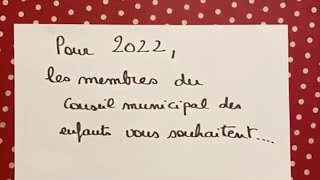 Pour 2022,
les membres du
Conseil municipal des
enfants vous souhaitent....